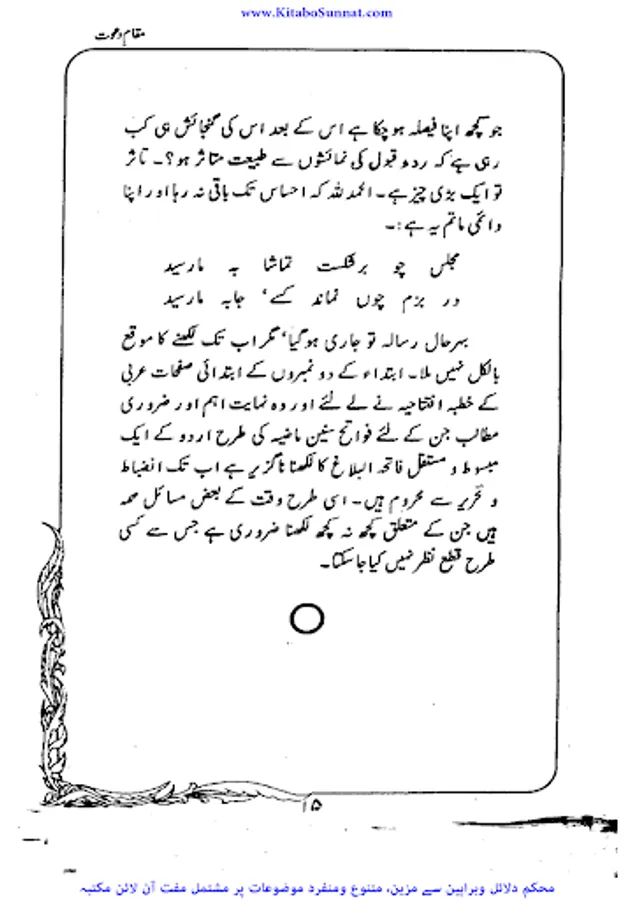 www.KitaboSunnat.com
مقام دعوت
جو کچھ اپنا فیصلہ ہو چکا ہے اس کے بعد اس کی گنجائش ہی کب
رہی ہے کہ رد و قبول کی نمائشوں سے طبیعت متاثر ہو؟۔ تاثر
تو ایک بڑی چیز ہے۔ الحمد للہ کہ احساس تک باقی نہ رہا اور اپنا
دائمی ماتم یہ ہے:۔
مجلس چو برشکست تماشا بہ مارسید
در بزم چوں نماند کسے، جابہ مارسید
بہرحال رسالہ تو جاری ہوگیا، مگر اب تک لکھنے کا موقع
بالکل نہیں ملا۔ ابتداء کے دو نمبروں کے ابتدائی صفحات عربی
کے خطبہ افتتاحیہ نے لے لئے اور وہ نہایت اہم اور ضروری
مطالب جن کے لئے فواتح سنین ماضیہ کی طرح اردو کے ایک
مبسوط و مستقل فاتحۃ البلاغ کا لکھنا ناگزیر ہے اب تک انضباط
و تحریر سے محروم ہیں۔ اسی طرح وقت کے بعض مسائل مہمہ
ہیں جن کے متعلق کچھ نہ کچھ لکھنا ضروری ہے جس سے کسی
طرح قطع نظر نہیں کیا جا سکتا۔
۱۵
محکم دلائل وبراہین سے مزین، متنوع ومنفرد موضوعات پر مشتمل مفت آن لائن مکتبہ